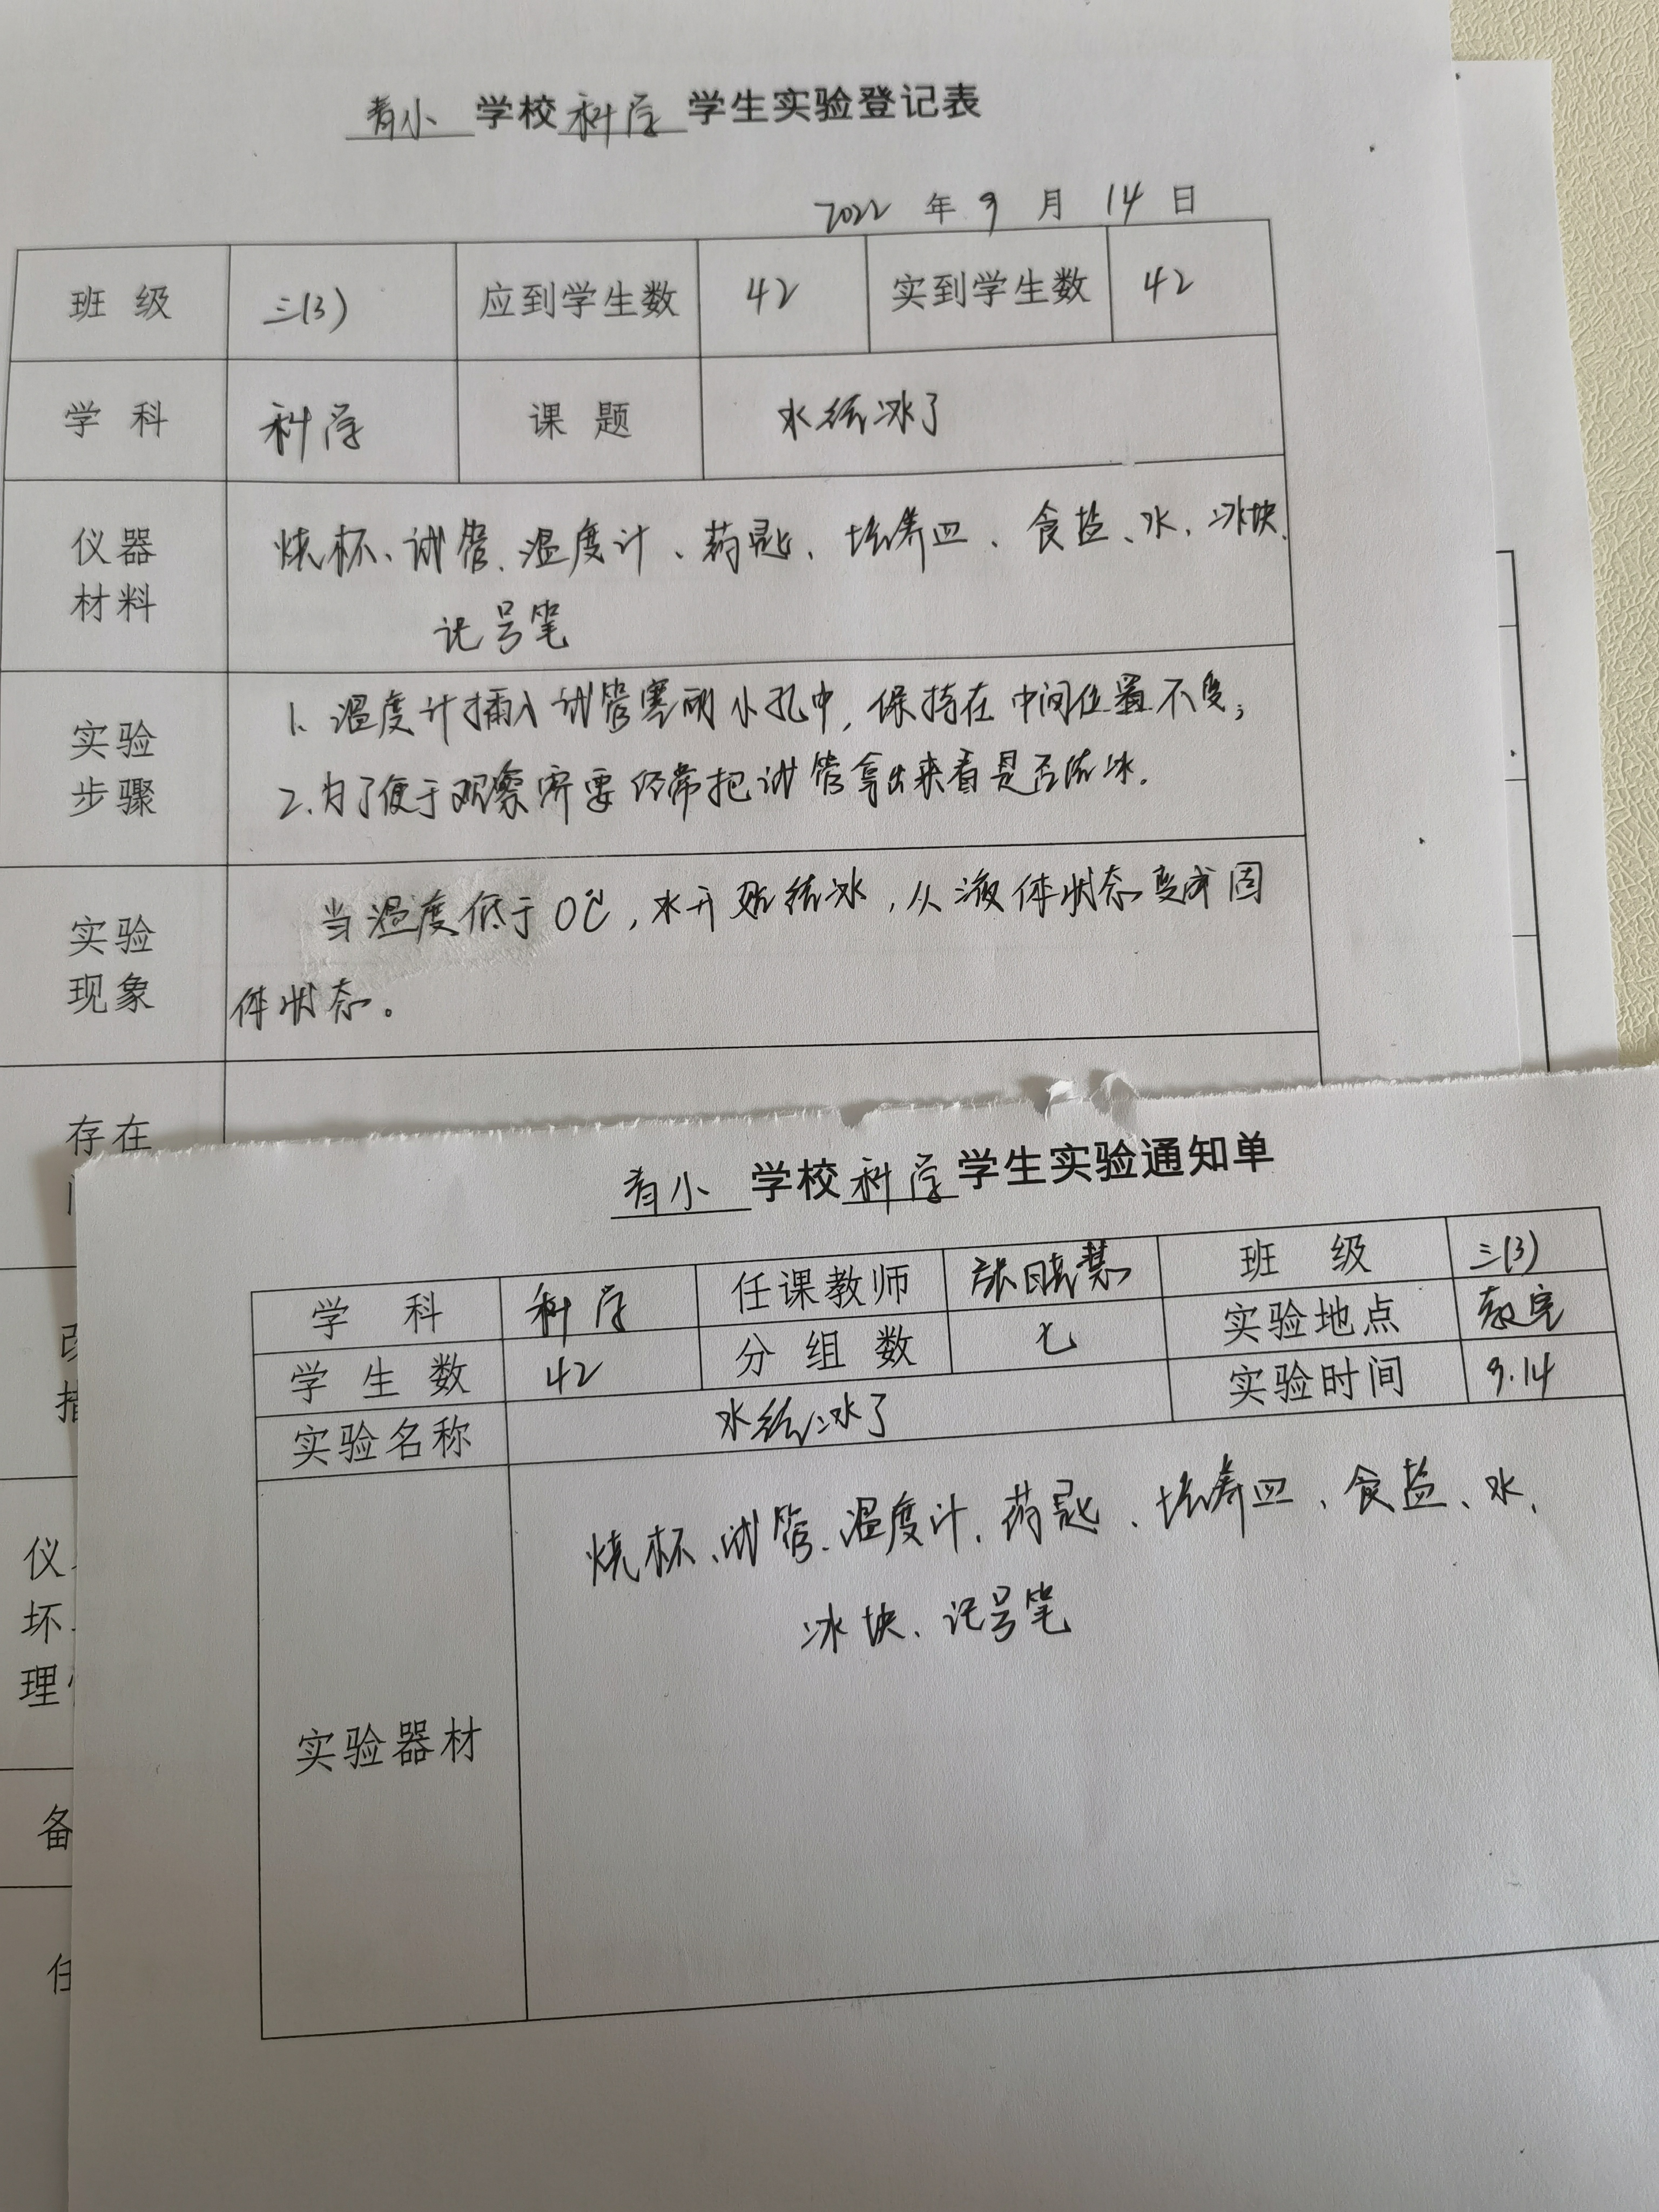 青小 学校 科学 学生实验登记表
2022 年 9 月 14 日
班 级 三(3) 应到学生数 42 实到学生数 42
学 科 科学 课 题 水结冰了
仪器
材料
烧杯、试管、温度计、药匙、培养皿、食盐、水、冰块、
记号笔
实验
步骤
1. 温度计插入试管塞的小孔中,保持在中间位置不变;
2. 为了便于观察需要经常把试管拿出来看是否结冰.
实验
现象
当温度低于0℃,水开始结冰,从液体状态变成固
体状态。
存在
仪
坏
理
备
青小 学校 科学 学生实验通知单
学 科 科学 任课教师 张晓慧 班 级 三(3)
学 生 数 42 分 组 数 七 实验地点 教室
实验名称 水结冰了 实验时间 9.14
实验器材
烧杯、试管、温度计、药匙、培养皿、食盐、水、
冰块、记号笔